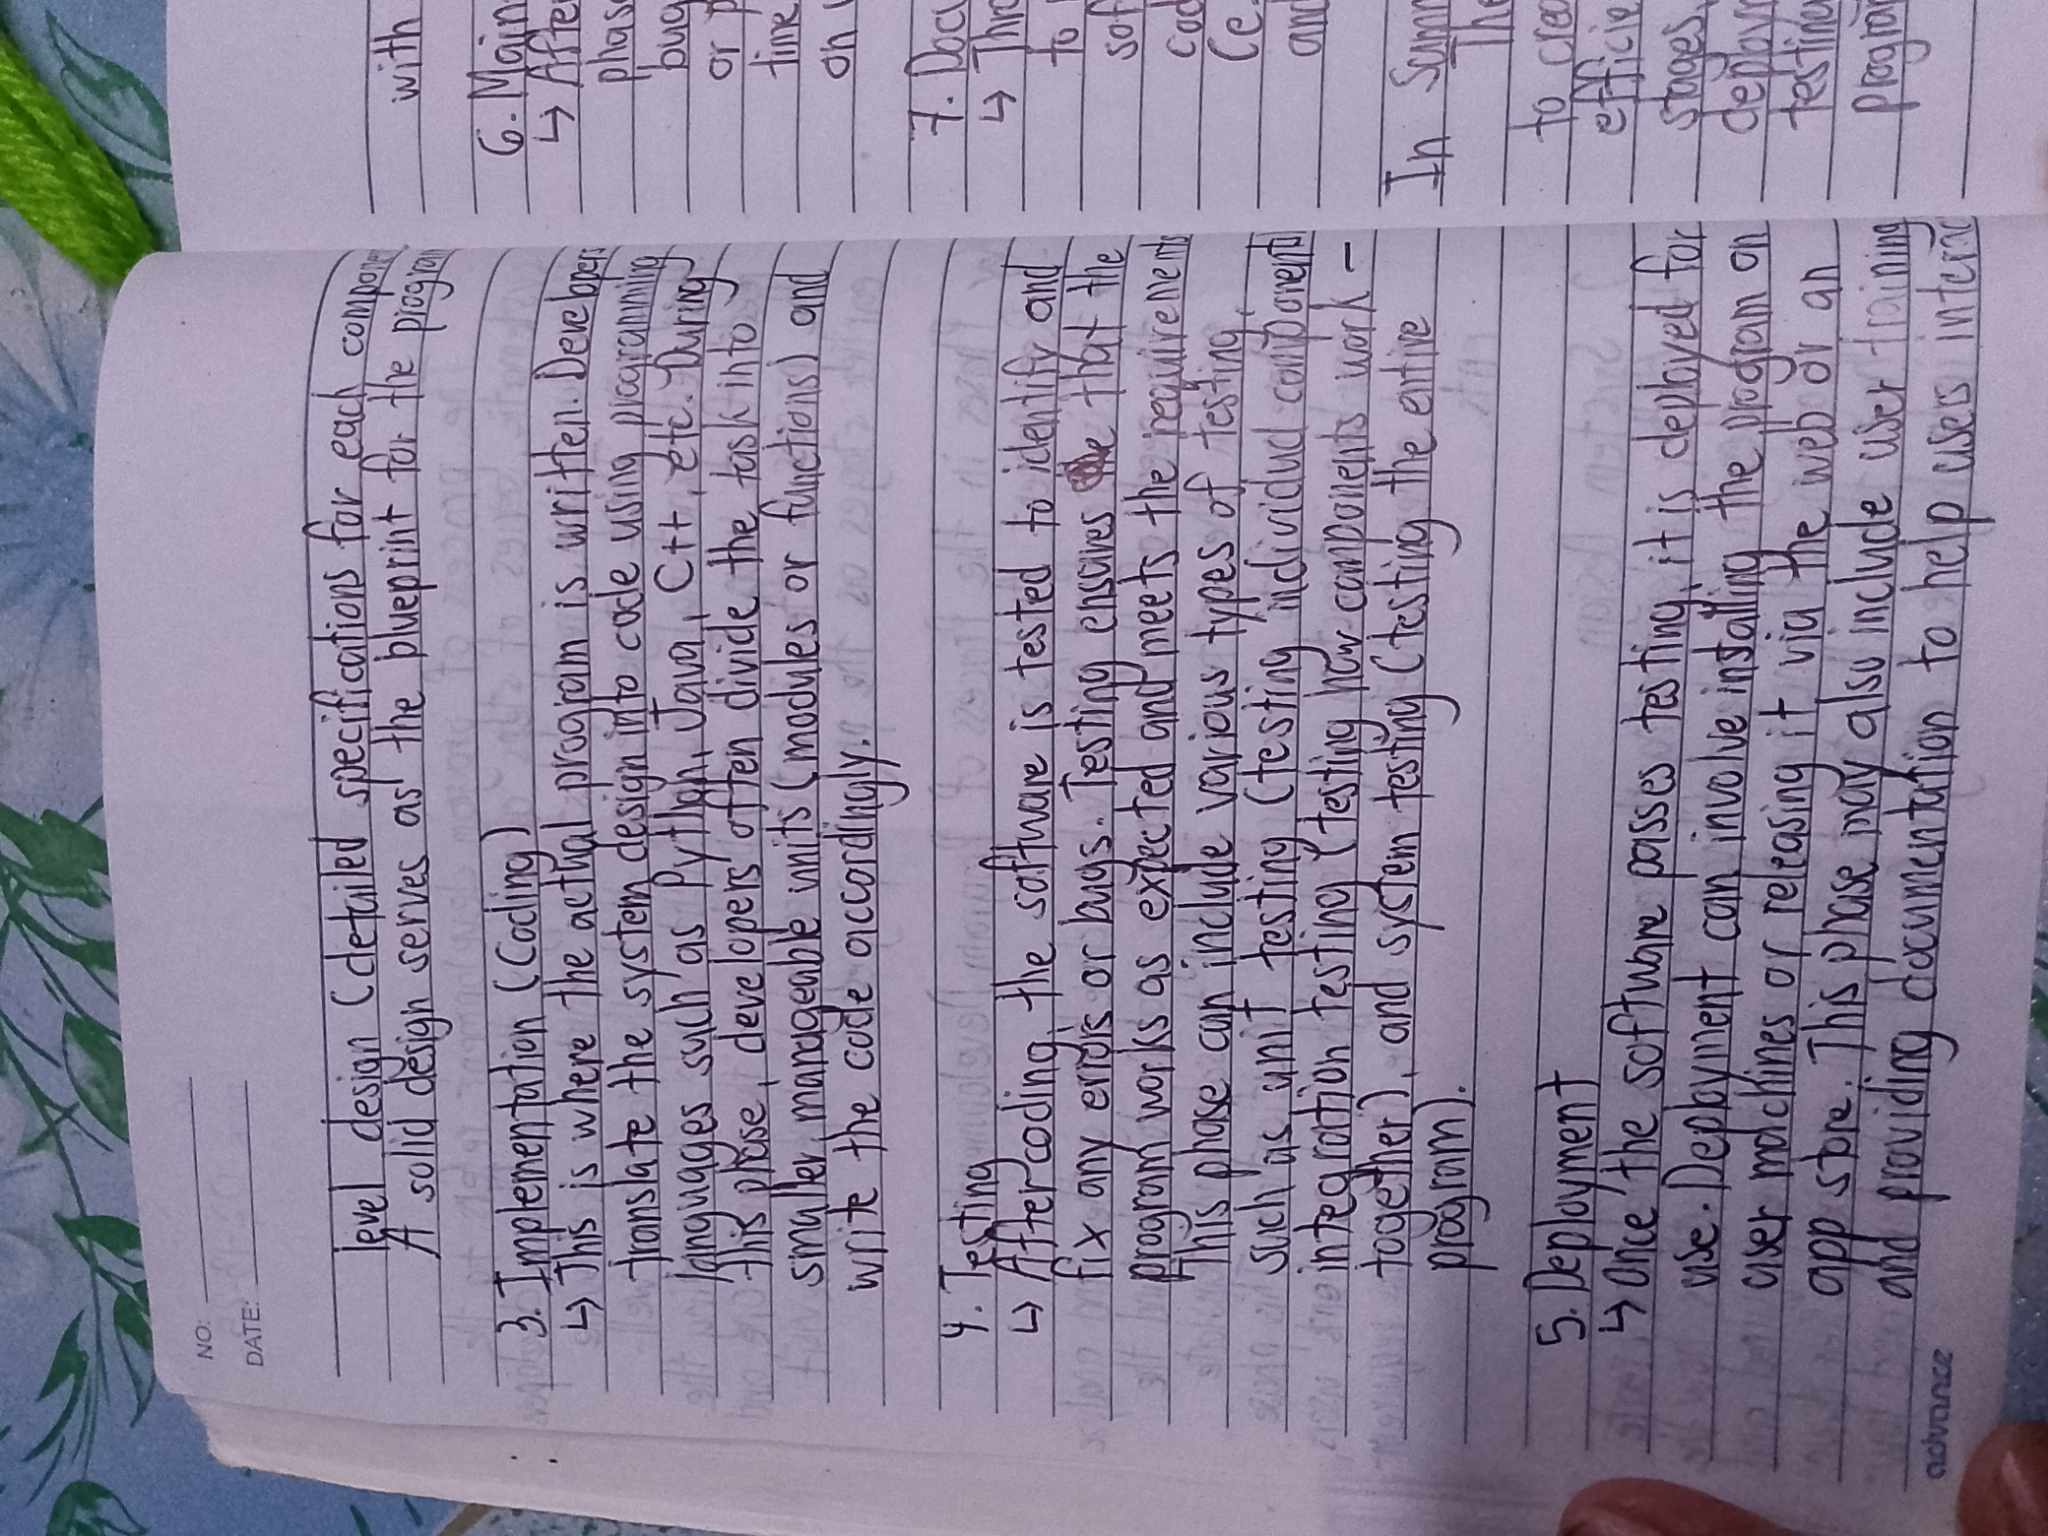 NO:
DATE:
level design (detailed specifications for each
A solid design serves as the blueprint for the
3. Implementation (Coding)
↳ This is where the actual program is written.
translate the system design into code using programming
languages such as Python, Java, C++, etc. During
this phase, developers often divide the task into
smaller manageable units (modules or functions) and
write the code accordingly.
4. Testing
↳ After coding, the software is tested to identify and
fix any errors or bugs. Testing ensures that the
program works as expected and meets the requirements
This phase can include various types of testing,
such as unit testing (testing individual
integration testing (testing how components work -
together), and system testing (testing the entire
program).
5. Deployment
↳ Once the software passes testing, it is deployed for
use. Deployment can involve installing the program on
user machines or releasing it via the web or an
app store. This phase may also include user training
and providing documentation to help users
advance
with
6.
↳ After
bug
or
time
on
7.
↳
to
and
In
The
to
stages
testing